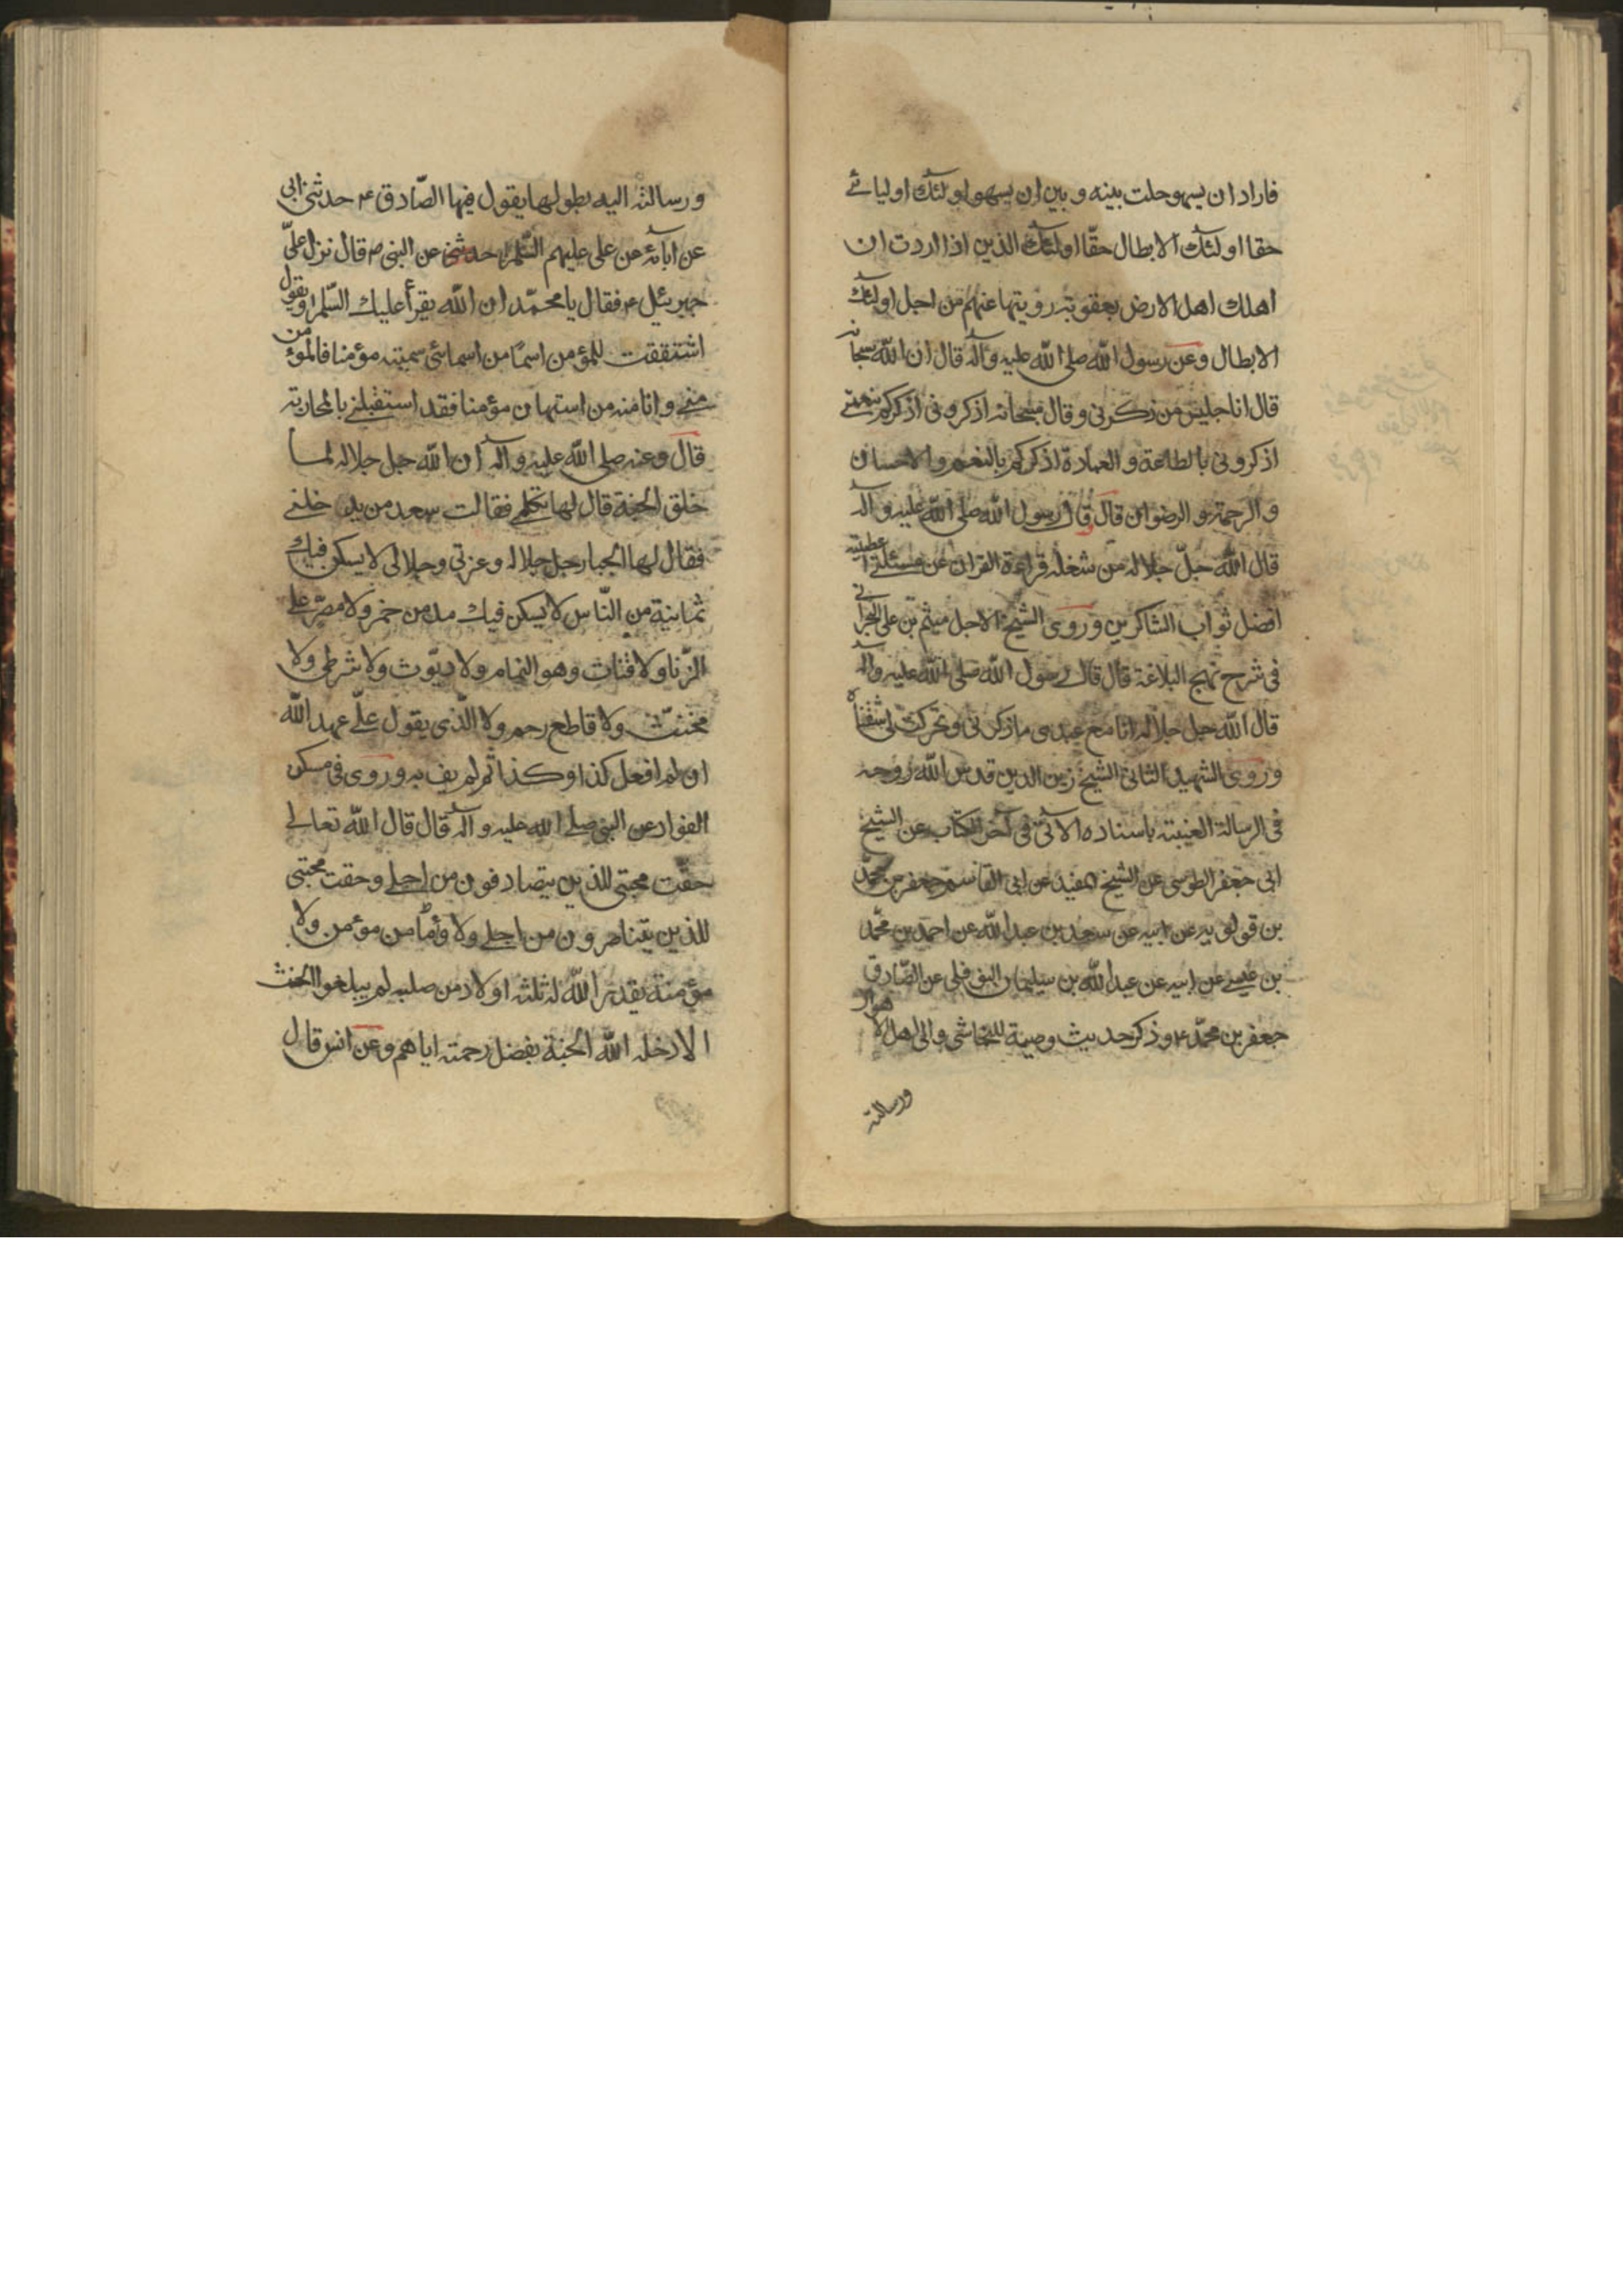 فاراد ان يسهو حلت بينه و بين ان يسهو اولئك اوليائے
حقا اولئك الابطال حقّا اولئك الذين اذا اردت ان
اهلك اهل الارض بعقوبة زويتها عنهم من اجل اولئك
الابطال وعن رسول الله صلى الله عليه وآله قال ان الله سبحانه
قال انا جليس من ذكرنى وقال سبحانه اذكرونى اذكركم بنعمتے
اذكرونى بالطاعة والعبادة اذكركم بالنعم والاحسان
والرحمة والرضوان قال وقال رسول الله صلى الله عليه وآله
قال الله جلّ جلاله من شغله قراءة القران عن مسئلتے اعطيته
افضل ثواب الشاكرين وروى الشيخ الاجل ميثم بن على البحرانى
فى شرح نهج البلاغة قال قال رسول الله صلى الله عليه وآله
قال الله جل جلاله انا مع عبدى ما ذكرنى وتحركت بى شفتاه
وروى الشهيد الثانى الشيخ زين الدين قدس الله روحه
فى الرسالة الغيبة باسناده الآتى فى آخر الكتاب عن الشيخ
ابى جعفر الطوسى عن الشيخ المفيد عن ابى القاسم جعفر بن محمّد
بن قولويه عن ابيه عن سعد بن عبد الله عن احمد بن محمّد
بن عيسے عن ابيه عن عبد الله بن سليمان النوفلى عن الصّادق
جعفر بن محمّد ع وذكر حديث وصيّة للنجاشى والى اهل الاهواز
ورسالته
ورسالته اليه بطولها يقول فيها الصّادق ع حدثنى ابى
عن ابآئه عن على عليهم السّلم حدثنى عن النبى ص قال نزل علىّ
جبرئيل ع فقال يا محمّد ان الله يقرأ عليك السّلم ويقول
اشتققت للمؤمن اسمًا من اسمائى سميته مؤمنا فالمؤمن
منے وانا منه من استهان مؤمنا فقد استقبلنے بالمحاربة
قال وعنه صلى الله عليه وآله ان الله جل جلاله لما
خلق الجنة قال لها تكلمے فقالت سعد من يدخلنے
فقال لها الجبار جل جلاله وعزتى وجلالى لا يسكن فيك
ثمانية من النّاس لا يسكن فيك مدمن خمر ولا مصرّ على
الزّنا ولا قتات وهو النمام ولا ديّوث ولا شرطى ولا
مخنّث ولا قاطع رحم ولا الّذى يقول علىّ عهد الله
ان لم افعل كذا وكذا ثم لم يف به وروى فى مسكن
الفواد عن النبى صلے الله عليه وآله قال قال الله تعالے
حقّت محبتى للذين يتصادقون من اجلے وحقت محبتى
للذين يتناصرون من اجلے ولا وأمّا من مؤمن ولا
مؤمنة يقدم الله له ثلثه اولاد من صلبه لم يبلغوا الحنث
الا ادخله الله الجنة بفضل رحمته اياهم وعن انس قال